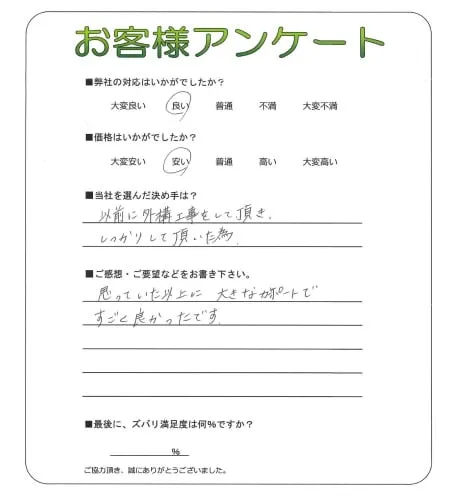 お客様アンケート
■弊社の対応はいかがでしたか？
大変良い 良い 普通 不満 大変不満
■価格はいかがでしたか？
大変安い 安い 普通 高い 大変高い
■当社を選んだ決め手は？
以前に外構工事をして頂き、
しっかりして頂いた為
■ご感想・ご要望などをお書き下さい。
思っていた以上に 大きなカポートで
すごく良かったです。
■最後に、ズバリ満足度は何%ですか？
%
ご協力頂き、誠にありがとうございました。